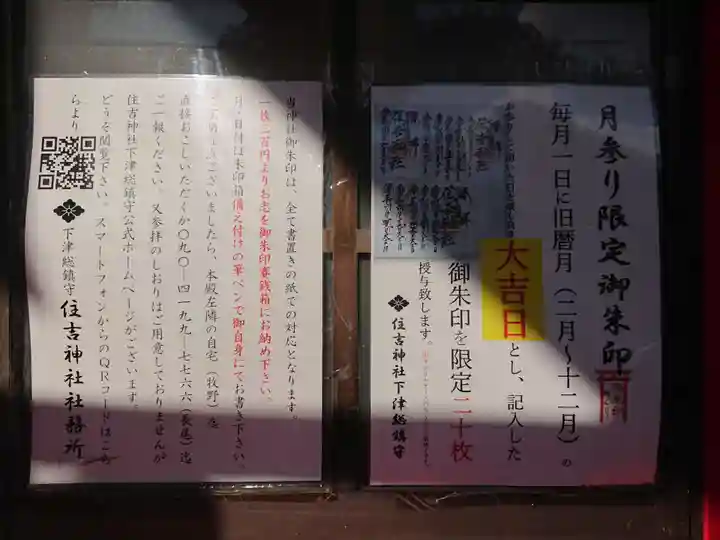 月参り限定御朱印
毎月一日に旧暦月（二月～十二月）の
大吉日とし、記入した
御朱印を限定二十枚
授与致します。
住吉神社下津総鎮守
当神社御朱印は、全て書置きの紙での対応となります。
一枚三百円よりお志を御朱印賽銭箱にお納め下さい。
月・日付は朱印箱備え付けの筆ペンで御自身にてお書き下さい。
ございましたら、本殿左隣の自宅（牧野）迄
直接お越しいただくか〇九〇ー四一九九ー七七六六（長尾）迄
ご一報ください。又参拝のしおりはご用意しておりませんが
住吉神社下津総鎮守公式ホームページがございます。
どうぞ閲覧下さい。スマートフォンからのQRコードはこち
らより
下津総鎮守 住吉神社社務所